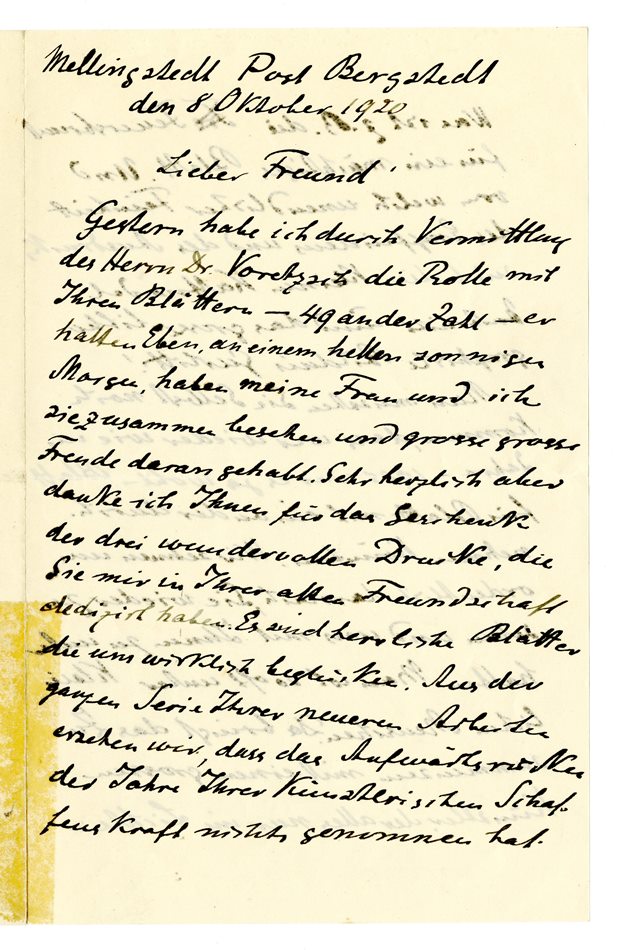 Mellingstedt Post Bergstedt
den 8 Oktober 1920
Lieber Freund!
Gestern habe ich durch Vermittlung
des Herrn Dr. Voretzsch die Rolle mit
Ihren Blättern – 49 an der Zahl – er
halten Eben, an einem hellen sonnigen
Morgen, haben meine Frau und ich
sie zusammen besehen und grosse grosse
Freude daran gehabt. Sehr herzlich aber
danke ich Ihnen für das Geschenk
der drei wundervollen Drucke, die
Sie mir in Ihrer alten Freundschaft
dedizirt haben. Es sind herrliche Blätter
die uns wirklich beglücken. Aus der
ganzen Serie Ihrer neueren Arbeiten
ersehen wir, dass das Aufwärtsrücken
der Jahre Ihrer Künstlerischen Schaf-
fens Kraft nichts genommen hat.